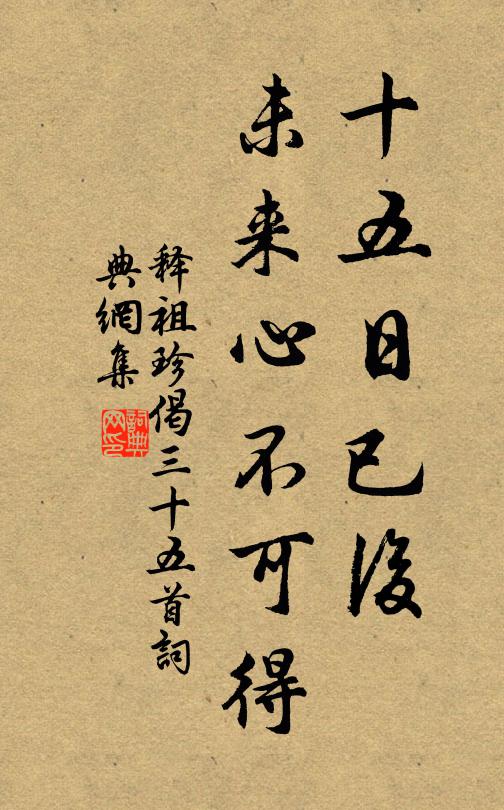 十五日已後
未来心不可得
释祖珍偈三十五首詞
典網集
詞典
网印